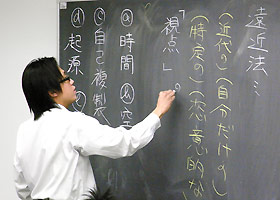 遠近法…
「(近代の)(自分だけの)
(特定の)(恣意的な)
視点」。
ⓐ時間&空
ⓒ自己複製
ⓓ起源